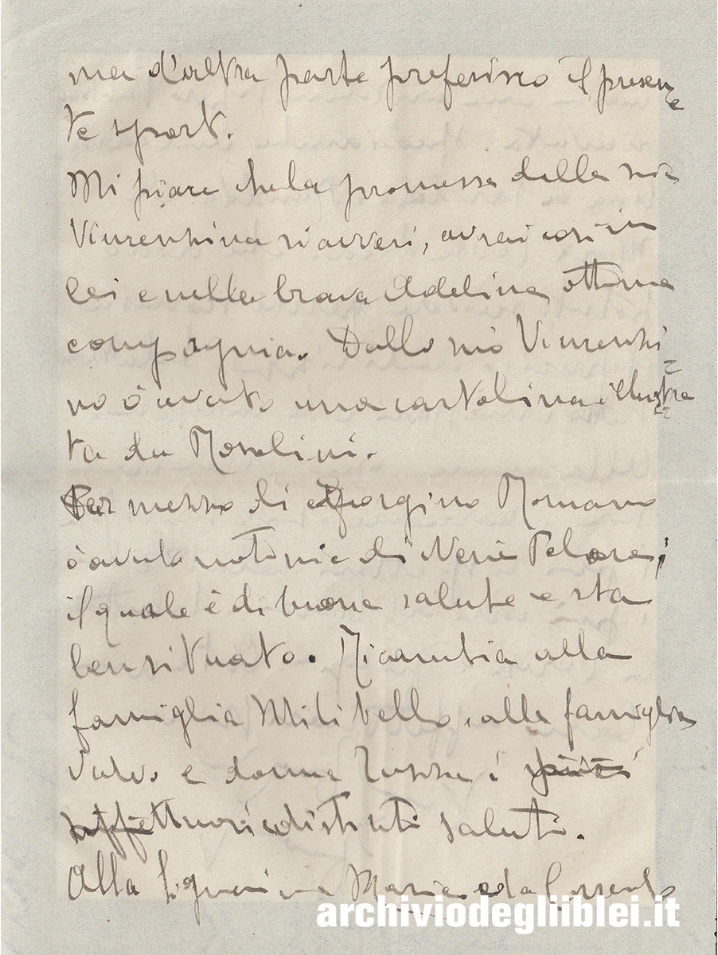 ma d'altra parte preferisco il presen
te sport.
Mi piace che la promessa della sua
Vincenzina si avveri, avrai così in
lei e nella brava Adelina ottima
compagnia. Dallo zio Vincenzi
no ò avuto una cartolina illustra
ta da
Per mezzo di Giorgino Romano
ò avuto notizie di Neriè
il quale è di buona salute e sta
ben situato. Ricambia alla
famiglia Militello, alla famiglia
e donna i
affettuosi e distinti saluti.
Alla Signorina Maria
archiviodegliiblei.it